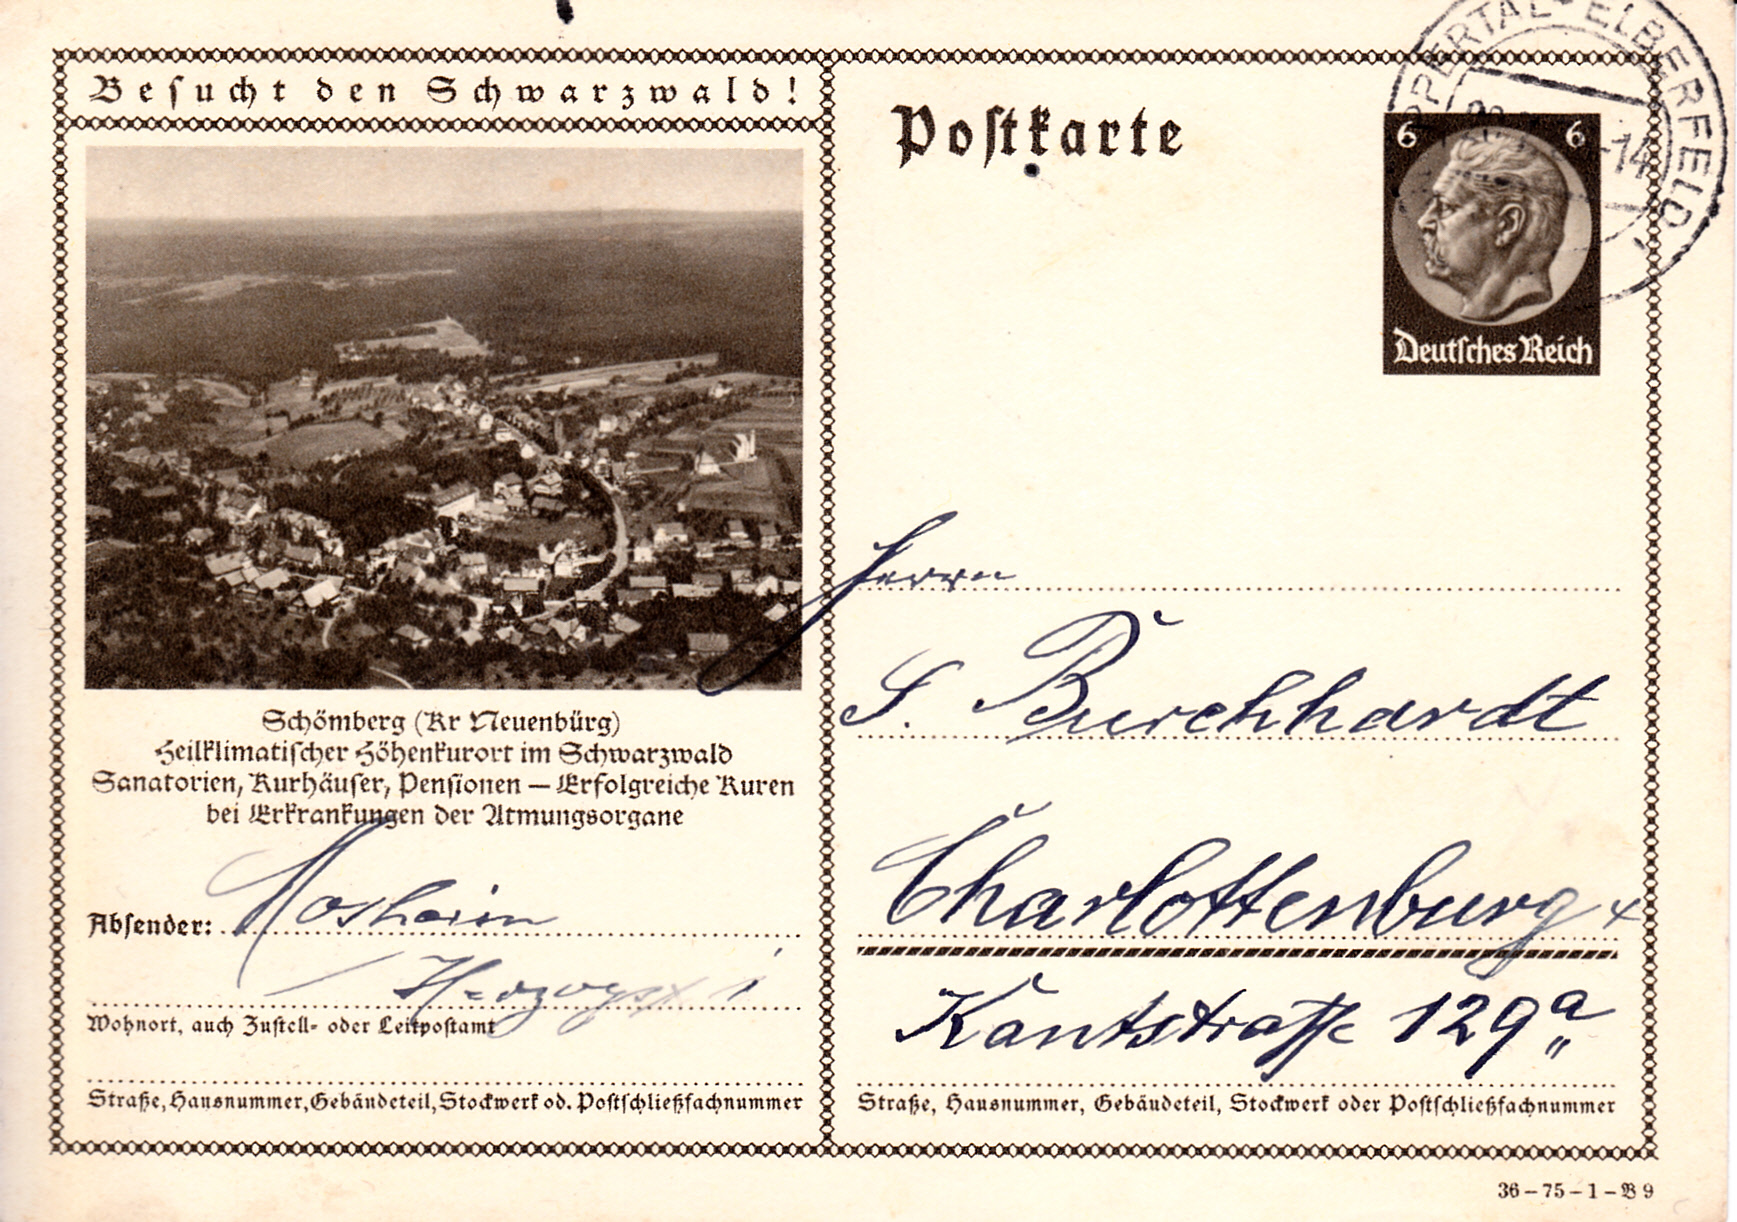 Besucht den Schwarzwald!
Postkarte
WUPPERTAL-ELBERFELD
-14
6 6
Deutsches Reich
Schömberg (Kr Neuenbürg)
Heilklimatischer Höhenkurort im Schwarzwald
Sanatorien, Kurhäuser, Pensionen — Erfolgreiche Kuren
bei Erkrankungen der Atmungsorgane
Absender: Mosheim
Herzogstr
Wohnort, auch Zustell- oder Leitpostamt
Straße, Hausnummer, Gebäudeteil, Stockwerk od. Postschließfachnummer
Herrn
S. Burchhardt
Charlottenburg
Kantstraße 129a
Straße, Hausnummer, Gebäudeteil, Stockwerk oder Postschließfachnummer
36 – 75 – 1 – B 9